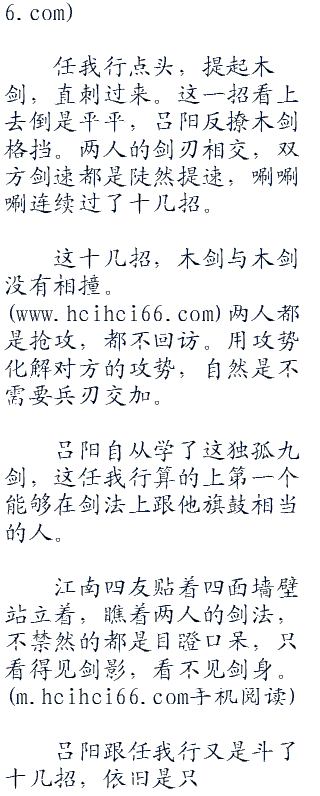 6.com)
任我行点头，提起木
剑，直刺过来。这一招看上
去倒是平平，吕阳反撩木剑
格挡。两人的剑刃相交，双
方剑速都是陡然提速，唰唰
唰连续过了十几招。
这十几招，木剑与木剑
没有相撞。
(www.hcihci66.com)两人都
是抢攻，都不回访。用攻势
化解对方的攻势，自然是不
需要兵刃交加。
吕阳自从学了这独孤九
剑，这任我行算的上第一个
能够在剑法上跟他旗鼓相当
的人。
江南四友贴着四面墙壁
站立着，瞧着两人的剑法，
不禁然的都是目瞪口呆，只
看得见剑影，看不见剑身。
(m.hcihci66.com手机阅读)
吕阳跟任我行又是斗了
十几招，依旧是只